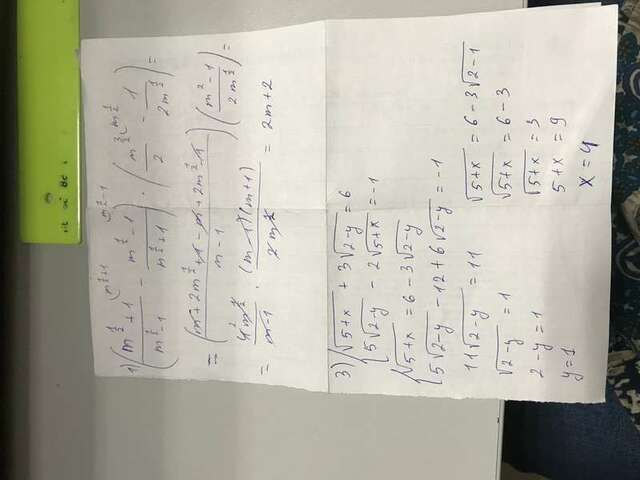 m^{1/2}+1 m^{1/2}-1 m^{1/2}
1) ( (m^{1/2}+1)/(m^{1/2}-1) - (m^{1/2}-1)/(m^{1/2}+1) ) · ( m^{3/2}/2 - 1/(2m^{1/2}) ) =
= ( (m+2m^{1/2}+1-m+2m^{1/2}-1)/(m-1) ) ( (m^2-1)/(2m^{1/2}) ) =
= 4m^{1/2}/(m-1) · (m-1)(m+1)/(2m^{1/2}) = 2m+2
3) { √(5+x) + 3√(2-y) = 6
5√(2-y) - 2√(5+x) = -1
{ √(5+x) = 6-3√(2-y)
5√(2-y) -12+6√(2-y) = -1
11√(2-y) = 11
√(2-y) = 1
2-y=1
y=1
√(5+x) = 6-3√(2-1)
√(5+x) = 6-3
√(5+x) = 3
5+x = 9
x = 4